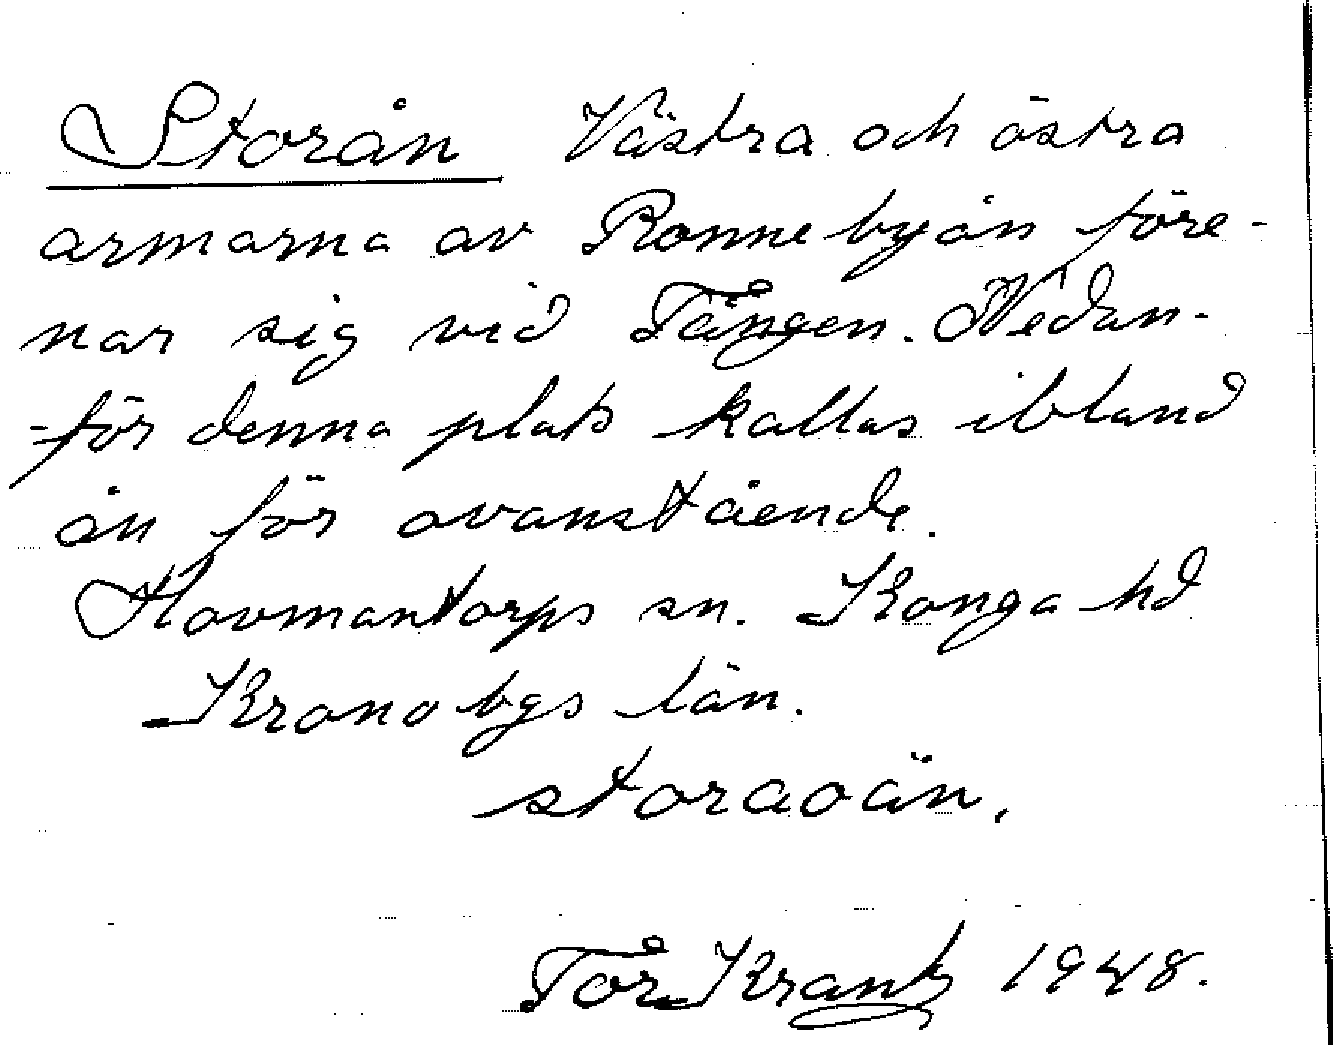 Storån Västra och östra
armarna av Ronnebyån före-
nar sig vid Tängen. Nedan-
för denna plats kallas ibland
ån för ovanstående.
Hovmantorps sn. Konga hd
Kronobgs län.
storaoän.
Tor Krantz 1948.